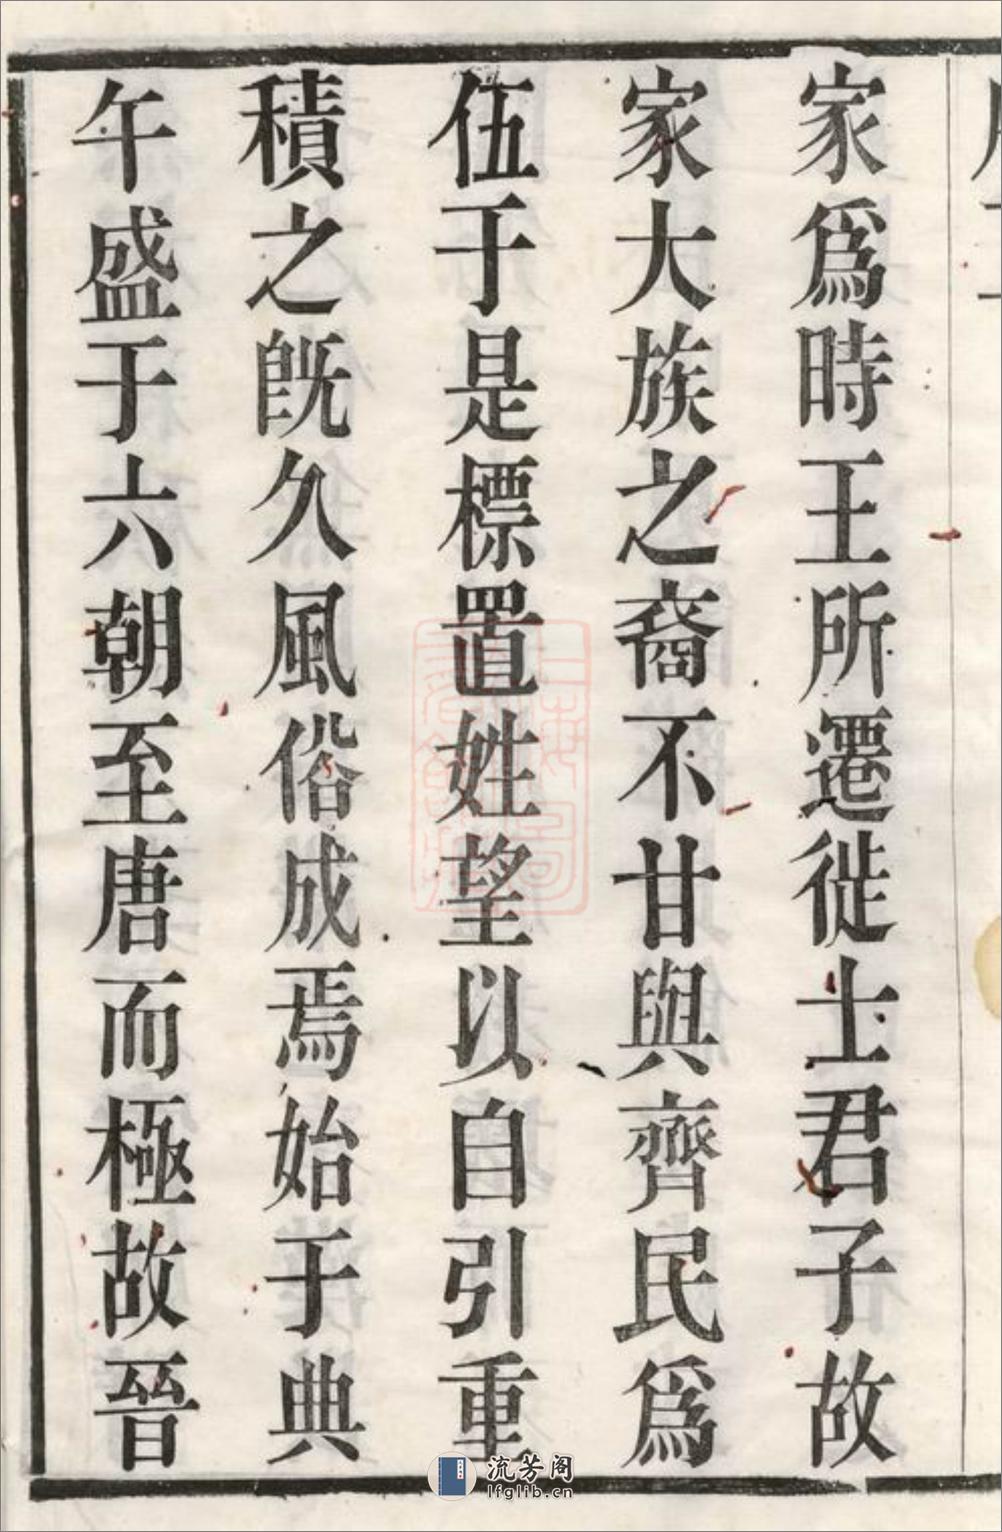 家爲時王所遷徙士君子故
家大族之裔不甘與齊民爲
伍于是標置姓望以自引重
積之旣久風俗成焉始于典
午盛于六朝至唐而極故晉
流芳阁
lfglib.cn